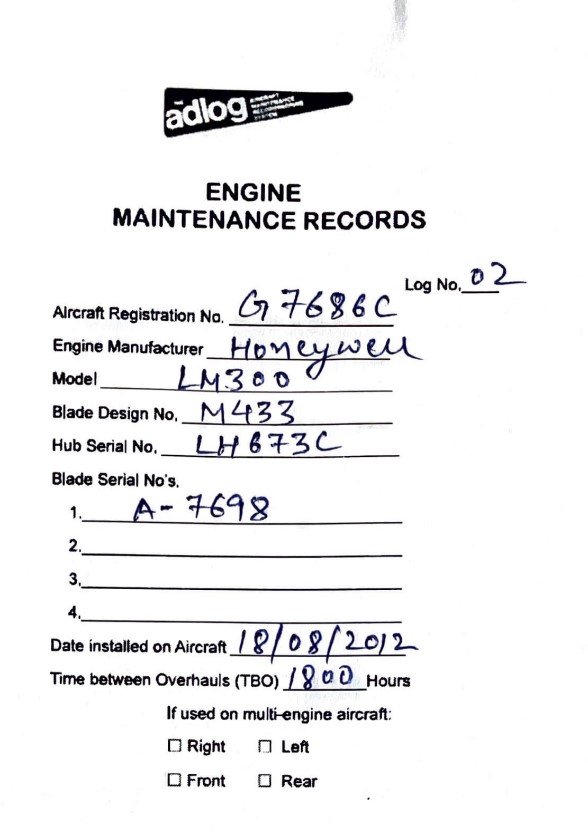 ādlog AIRCRAFT
MAINTENANCE
RECORDKEEPING
SYSTEM
ENGINE
MAINTENANCE RECORDS
Log No. 02
Aircraft Registration No. G7686C
Engine Manufacturer Honeywell
Model LM300
Blade Design No. M433
Hub Serial No. LH673C
Blade Serial No's.
1. A-7698
2.
3.
4.
Date installed on Aircraft 18/08/2012
Time between Overhauls (TBO) 1800 Hours
If used on multi-engine aircraft:
☐ Right ☐ Left
☐ Front ☐ Rear